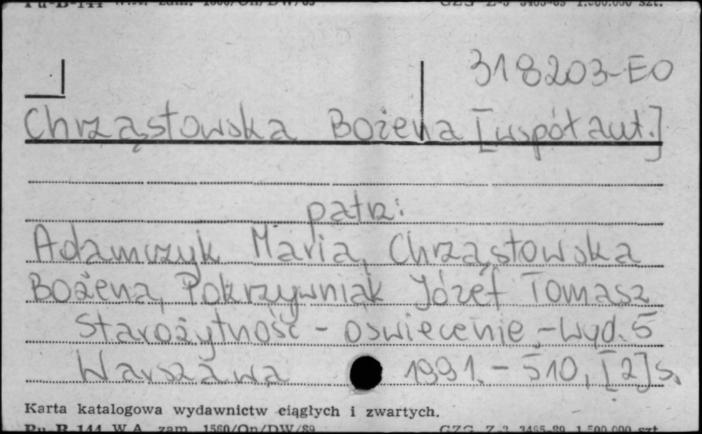 318203-EO
Chrząstowska Bożena [współaut.]
patrz:
Adamczyk Maria, Chrząstowska
Bożena, Pokrzywniak Józef Tomasz
Starożytność - oświecenie.-Wyd. 5
Warszawa 1991. - 510, [2]s.
Karta katalogowa wydawnictw ciągłych i zwartych.
Pu-B-144 W.A. zam. 1560/On/DW/89 GZG Z-3 3465-89 1.500.000 szt.